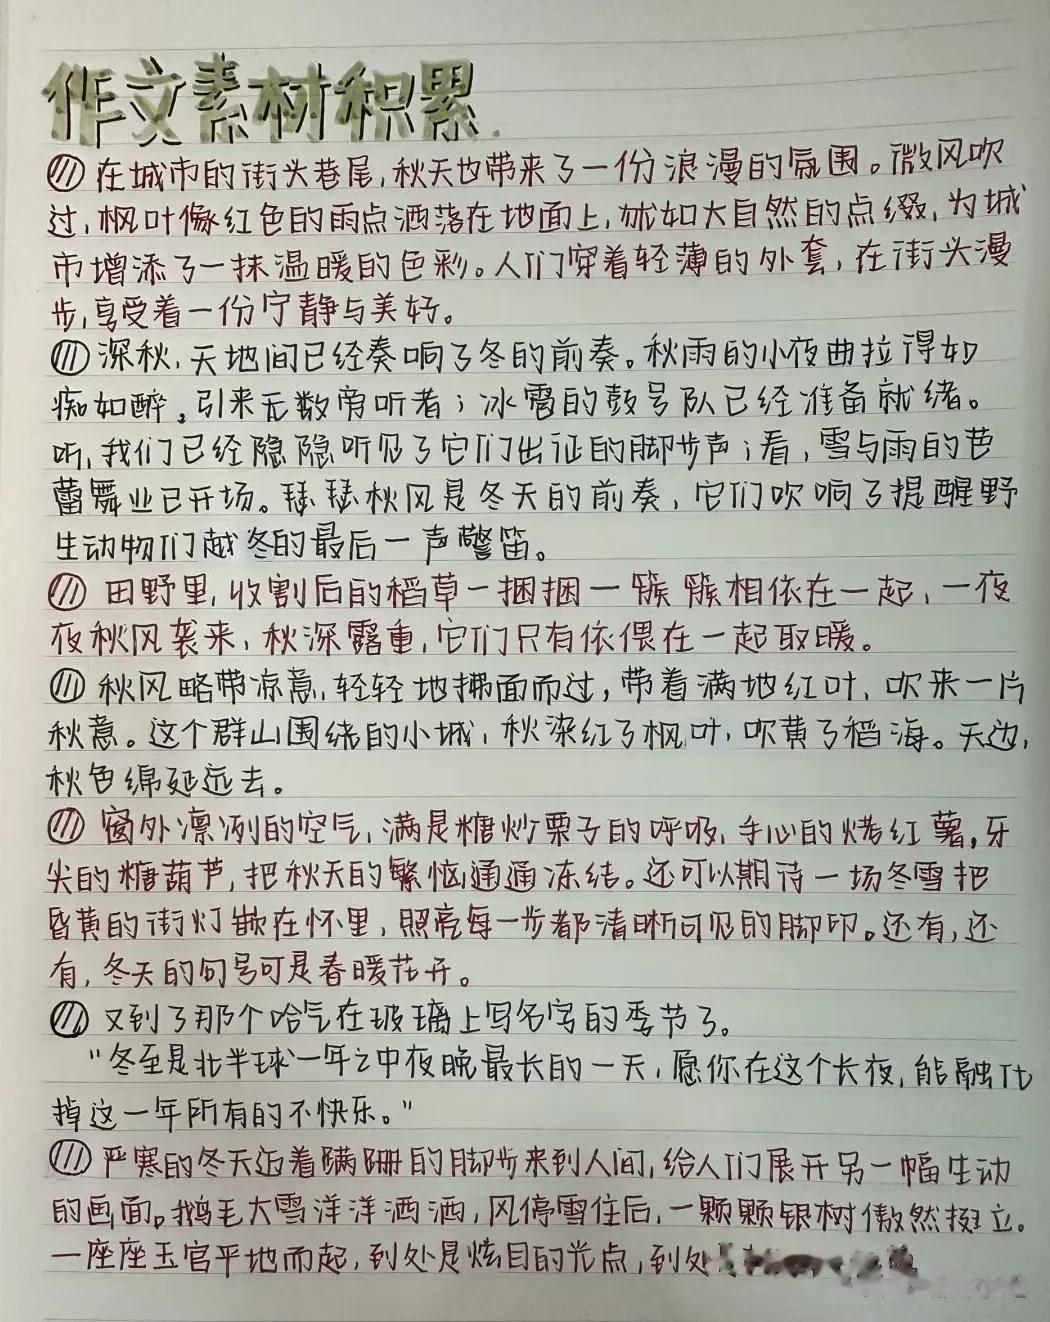 作文素材积累.
在城市的街头巷尾,秋天也带来了一份浪漫的氛围。微风吹
过,枫叶像红色的雨点洒落在地面上,犹如大自然的点缀,为城
市增添了一抹温暖的色彩。人们穿着轻薄的外套,在街头漫
步,享受着一份宁静与美好。
深秋,天地间已经奏响了冬的前奏。秋雨的小夜曲拉得如
痴如醉,引来无数旁听者;冰雹的鼓号队已经准备就绪。
听,我们已经隐隐听见了它们出征的脚步声;看,雪与雨的芭
蕾舞业已开场。瑟瑟秋风是冬天的前奏,它们吹响了提醒野
生动物们越冬的最后一声警笛。
田野里,收割后的稻草一捆捆一簇簇相依在一起,一夜
夜秋风袭来,秋深露重,它们只有依偎在一起取暖。
秋风略带凉意,轻轻地拂面而过,带着满地红叶,吹来一片
秋意。这个群山围绕的小城,秋染红了枫叶,吹黄了稻海。天边,
秋色绵延远去。
窗外凛冽的空气,满是糖炒栗子的呼吸,手心的烤红薯,牙
尖的糖葫芦,把秋天的繁恼通通冻结。还可以期待一场冬雪把
昏黄的街灯嵌在怀里,照亮每一步都清晰可见的脚印。还有,还
有,冬天的句号可是春暖花开。
又到了那个哈气在玻璃上写名字的季节了。
"冬至是北半球一年之中夜晚最长的一天,愿你在这个长夜,能融化
掉这一年所有的不快乐。"
严寒的冬天迈着蹒跚的脚步来到人间,给人们展开另一幅生动
的画面。鹅毛大雪洋洋洒洒,风停雪住后,一颗颗银树傲然挺立。
一座座玉宫平地而起,到处是炫目的光点,到处